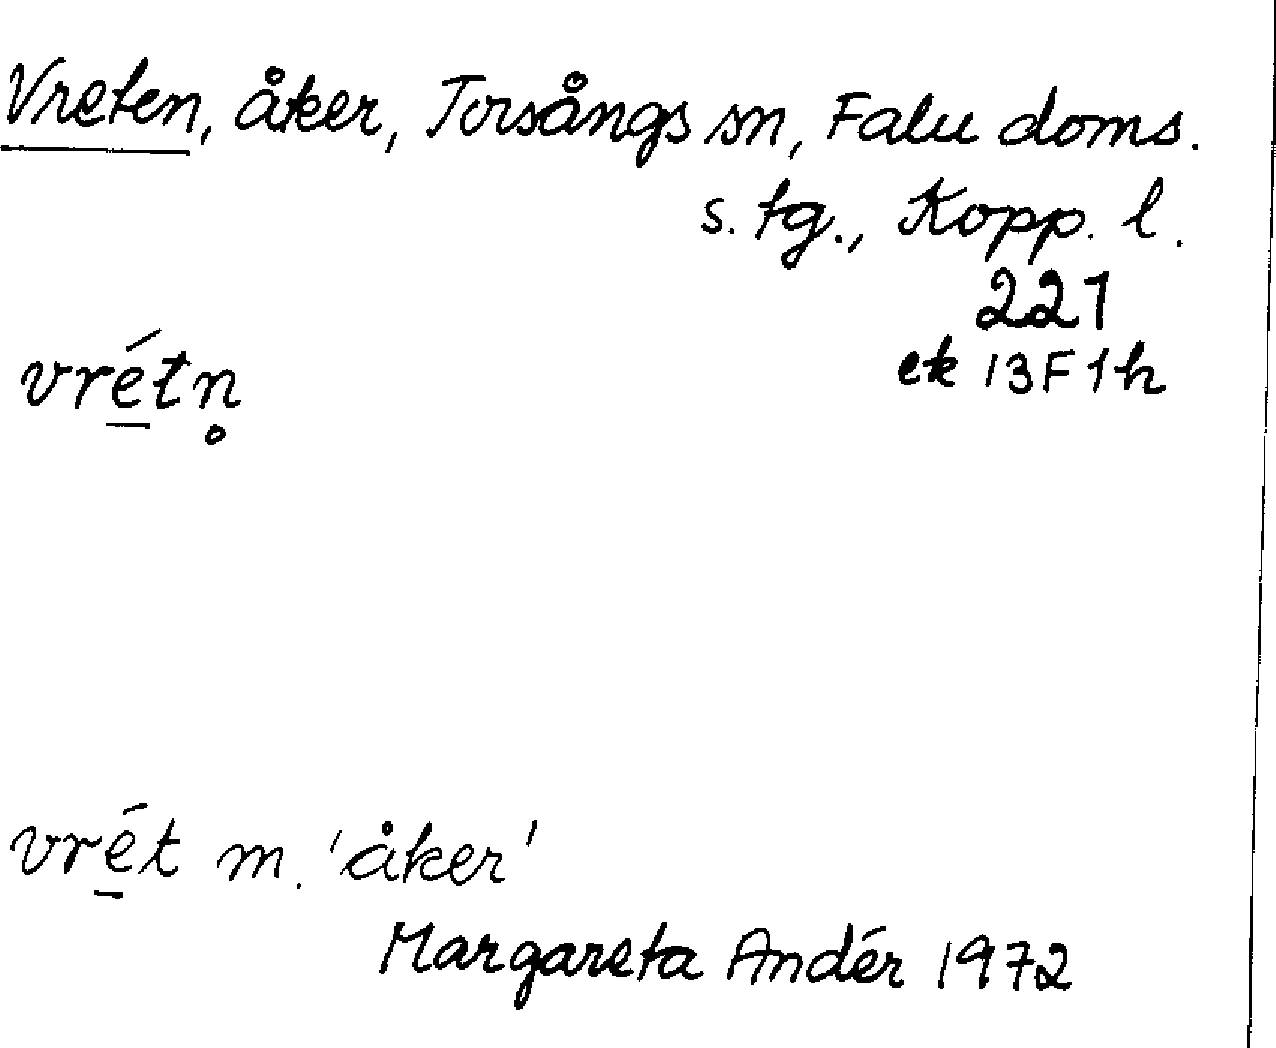 Vreten, åker, Torsångs sn, Falu doms.
s. tg., Kopp. l.
221
ek 13F1h
vré̱tn̥
vré̱t m. 'åker'
Margareta Andér 1972